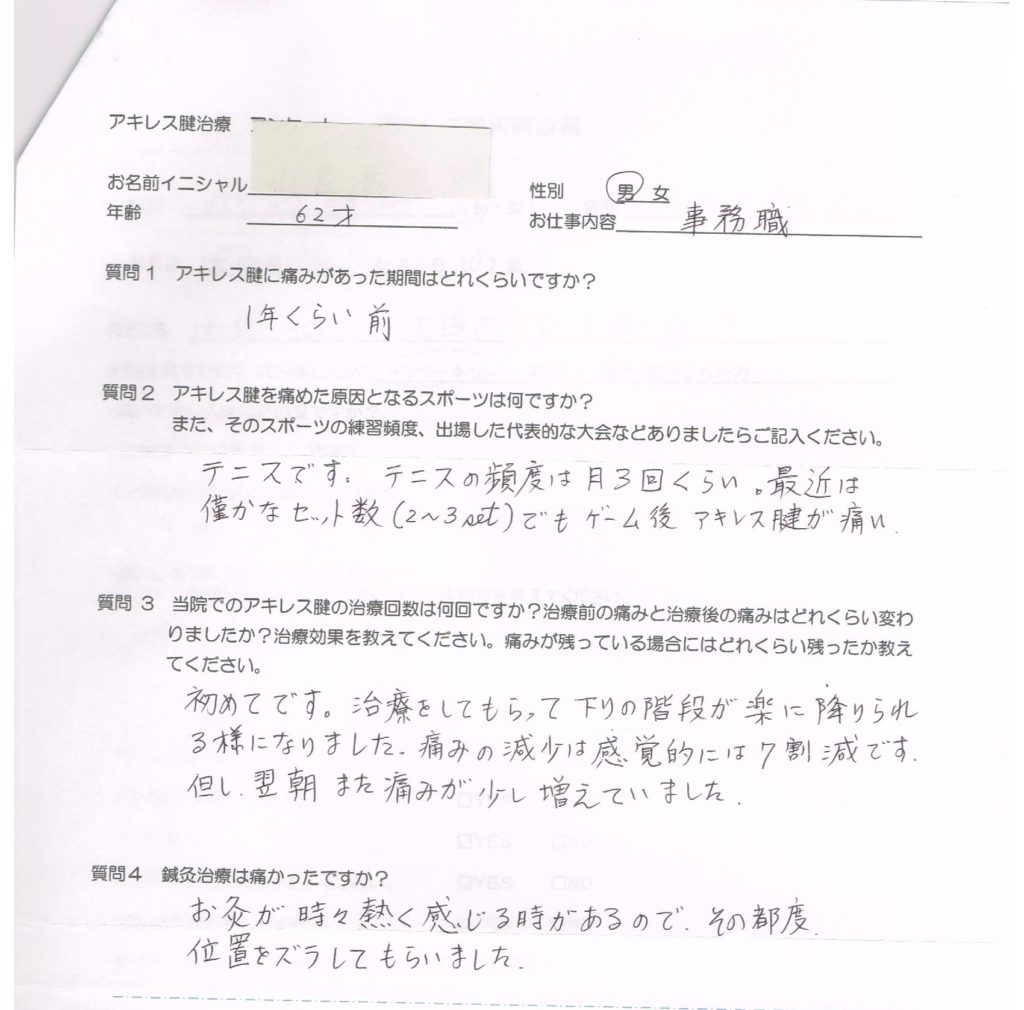 アキレス腱治療
お名前イニシャル
性別 男 女
年齢 62才
お仕事内容 事務職
質問1 アキレス腱に痛みがあった期間はどれくらいですか?
1年くらい前
質問2 アキレス腱を痛めた原因となるスポーツは何ですか?
また、そのスポーツの練習頻度、出場した代表的な大会などありましたらご記入ください。
テニスです。テニスの頻度は月3回くらい。最近は
僅かなセット数(2〜3set)でもゲーム後アキレス腱が痛い.
質問 3 当院でのアキレス腱の治療回数は何回ですか?治療前の痛みと治療後の痛みはどれくらい変わ
りましたか?治療効果を教えてください。痛みが残っている場合にはどれくらい残ったか教え
てください。
初めてです。治療をしてもらって下りの階段が楽に降りられ
る様になりました.痛みの減少は感覚的には7割減です.
但し.翌朝また痛みが少し増えていました.
質問4 鍼灸治療は痛かったですか?
お灸が時々熱く感じる時があるので.その都度.
位置をズラしてもらいました.